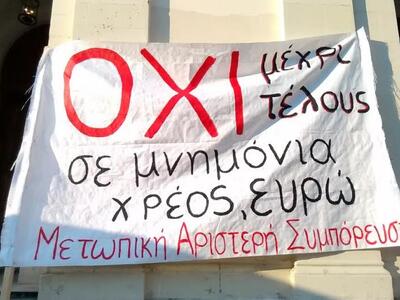 ΟΧΙ μέχρι
τέλους
σε μνημόνια
χρέος, ευρώ
Μετωπική Αριστερή